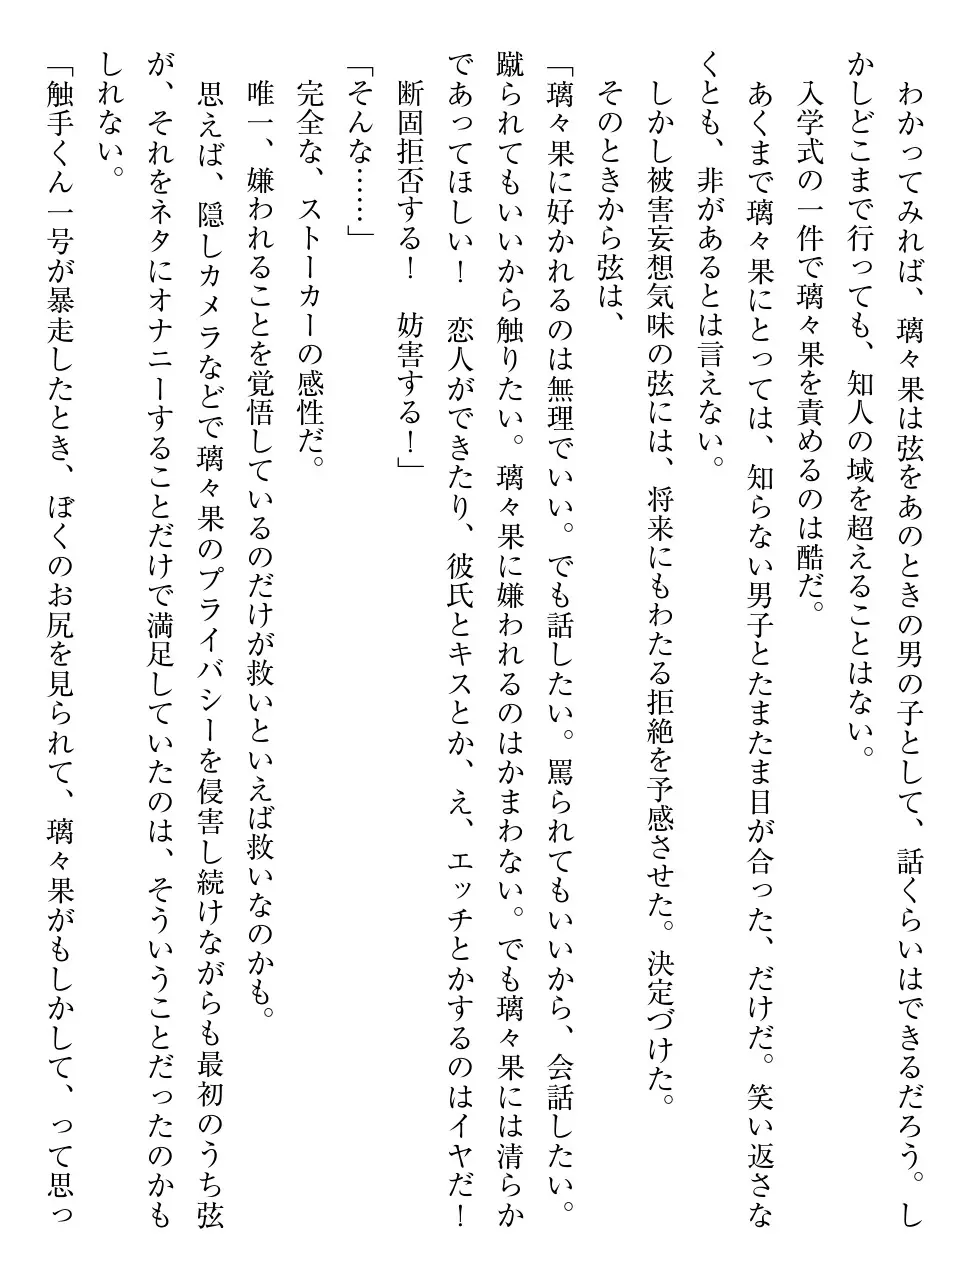 わかってみれば、璃々果は弦をあのときの男の子として、話くらいはできるだろう。し
かしどこまで行っても、知人の域を超えることはない。
　入学式の一件で璃々果を責めるのは酷だ。
　あくまで璃々果にとっては、知らない男子とたまたま目が合った、だけだ。笑い返さな
くとも、非があるとは言えない。
　しかし被害妄想気味の弦には、将来にもわたる拒絶を予感させた。決定づけた。
　そのときから弦は、
「璃々果に好かれるのは無理でいい。でも話したい。罵られてもいいから、会話したい。
蹴られてもいいから触りたい。璃々果に嫌われるのはかまわない。でも璃々果には清らか
であってほしい！　恋人ができたり、彼氏とキスとか、え、エッチとかするのはイヤだ！
断固拒否する！　妨害する！」
「そんな……」
　完全な、ストーカーの感性だ。
　唯一、嫌われることを覚悟しているのだけが救いといえば救いなのかも。
　思えば、隠しカメラなどで璃々果のプライバシーを侵害し続けながらも最初のうち弦
が、それをネタにオナニーすることだけで満足していたのは、そういうことだったのかも
しれない。
「触手くん一号が暴走したとき、ぼくのお尻を見られて、璃々果がもしかして、って思っ